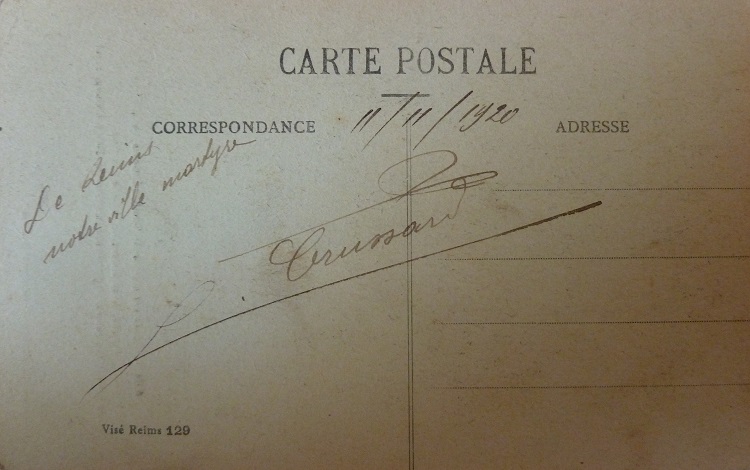 CARTE POSTALE
11/11/1920
CORRESPONDANCE
ADRESSE
De Reims
notre ville martyre
Trussard
Visé Reims 129